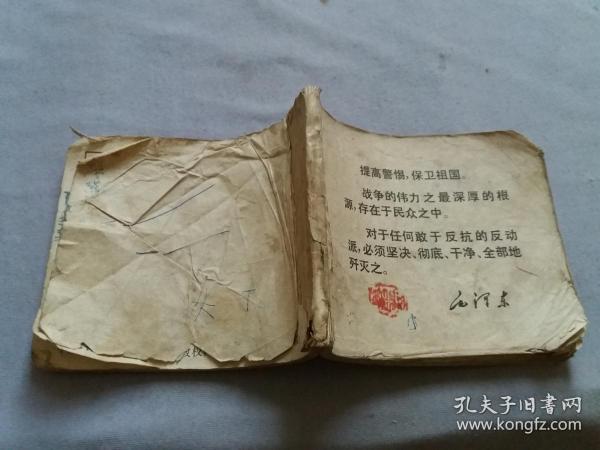 提高警惕，保卫祖国。
战争的伟力之最深厚的根
源，存在于民众之中。
对于任何敢于反抗的反动
派，必须坚决、彻底、干净、全部地
歼灭之。
毛泽东
孔夫子旧书网
www.kongfz.com